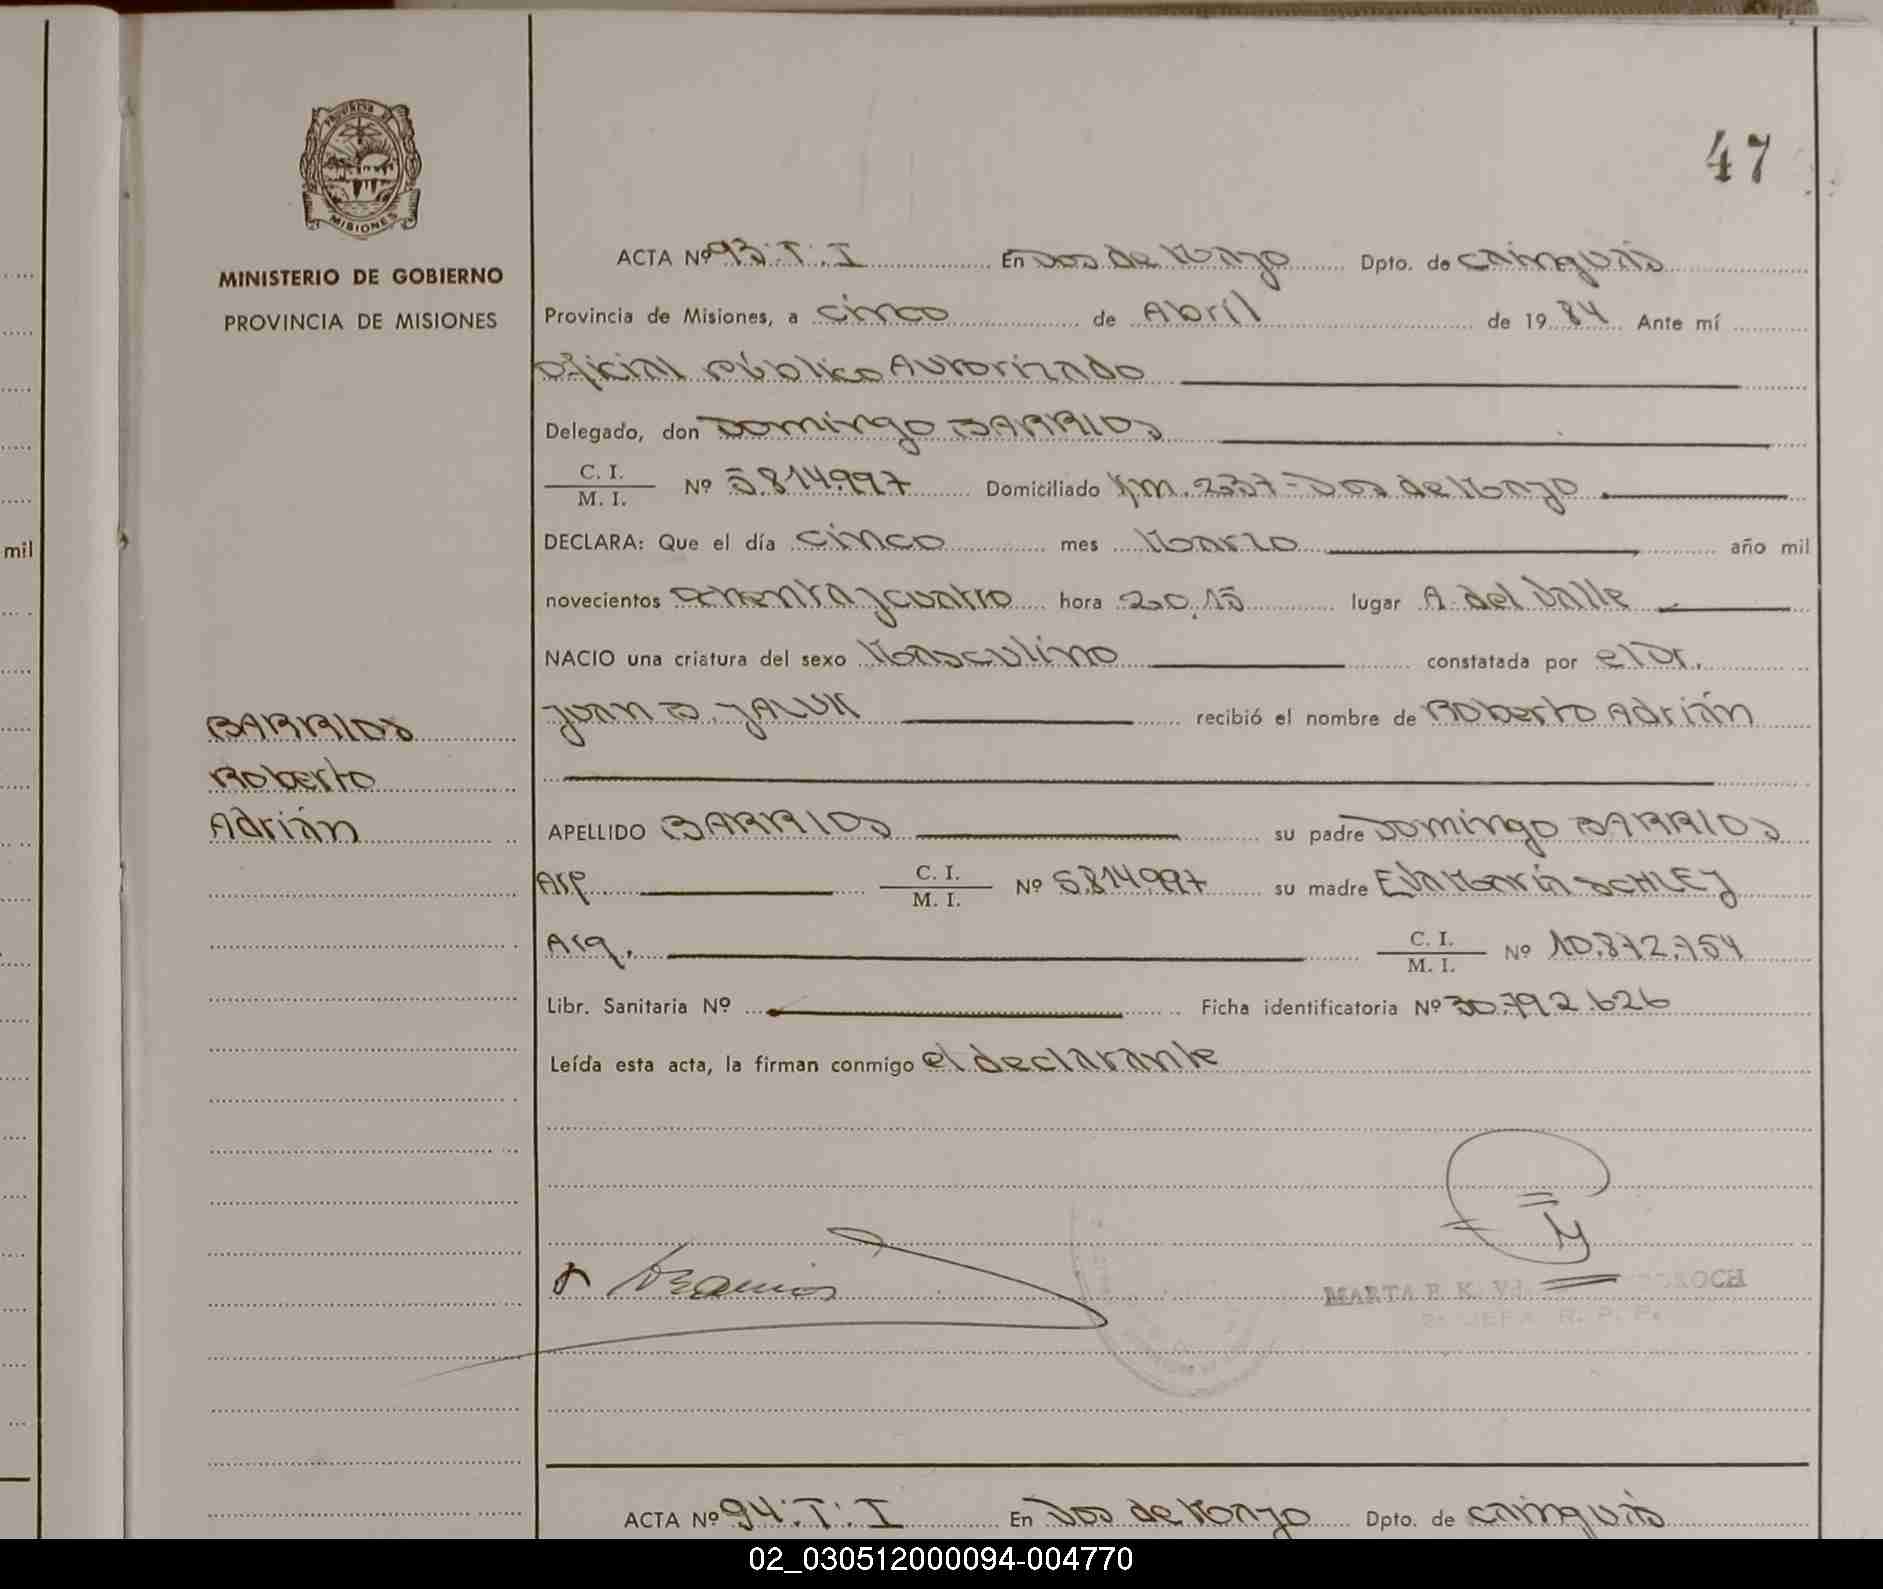 47
MISIONES
MINISTERIO DE GOBIERNO
PROVINCIA DE MISIONES
BARRIOS
Roberto
Adrián
mil
ACTA Nº 93.T.I En Dos de Mayo Dpto. de Cainguás
Provincia de Misiones, a cinco de Abril de 1984 Ante mí
Oficial Público Autorizado
Delegado, don Domingo BARRIOS
C. I.
M. I. Nº 5.814.997 Domiciliado Km. 2337-Dos de Mayo
DECLARA: Que el día cinco mes Marzo año mil
novecientos ochenta y cuatro hora 20,15 lugar A. del Valle
NACIO una criatura del sexo Masculino constatada por el Dr.
Juan recibió el nombre de Roberto Adrián
APELLIDO BARRIOS su padre Domingo BARRIOS
Arg. C. I.
M. I. Nº 5.814.997 su madre Eva María SCHLEY
Arg. C. I.
M. I. Nº 10.872.754
Libr. Sanitaria Nº Ficha identificatoria Nº 30.792.626
Leída esta acta, la firman conmigo el declarante
MARTA E K. Vd.
R. P. P.
ACTA Nº 94.T.I En Dos de Mayo Dpto. de Cainguás
02_030512000094-004770